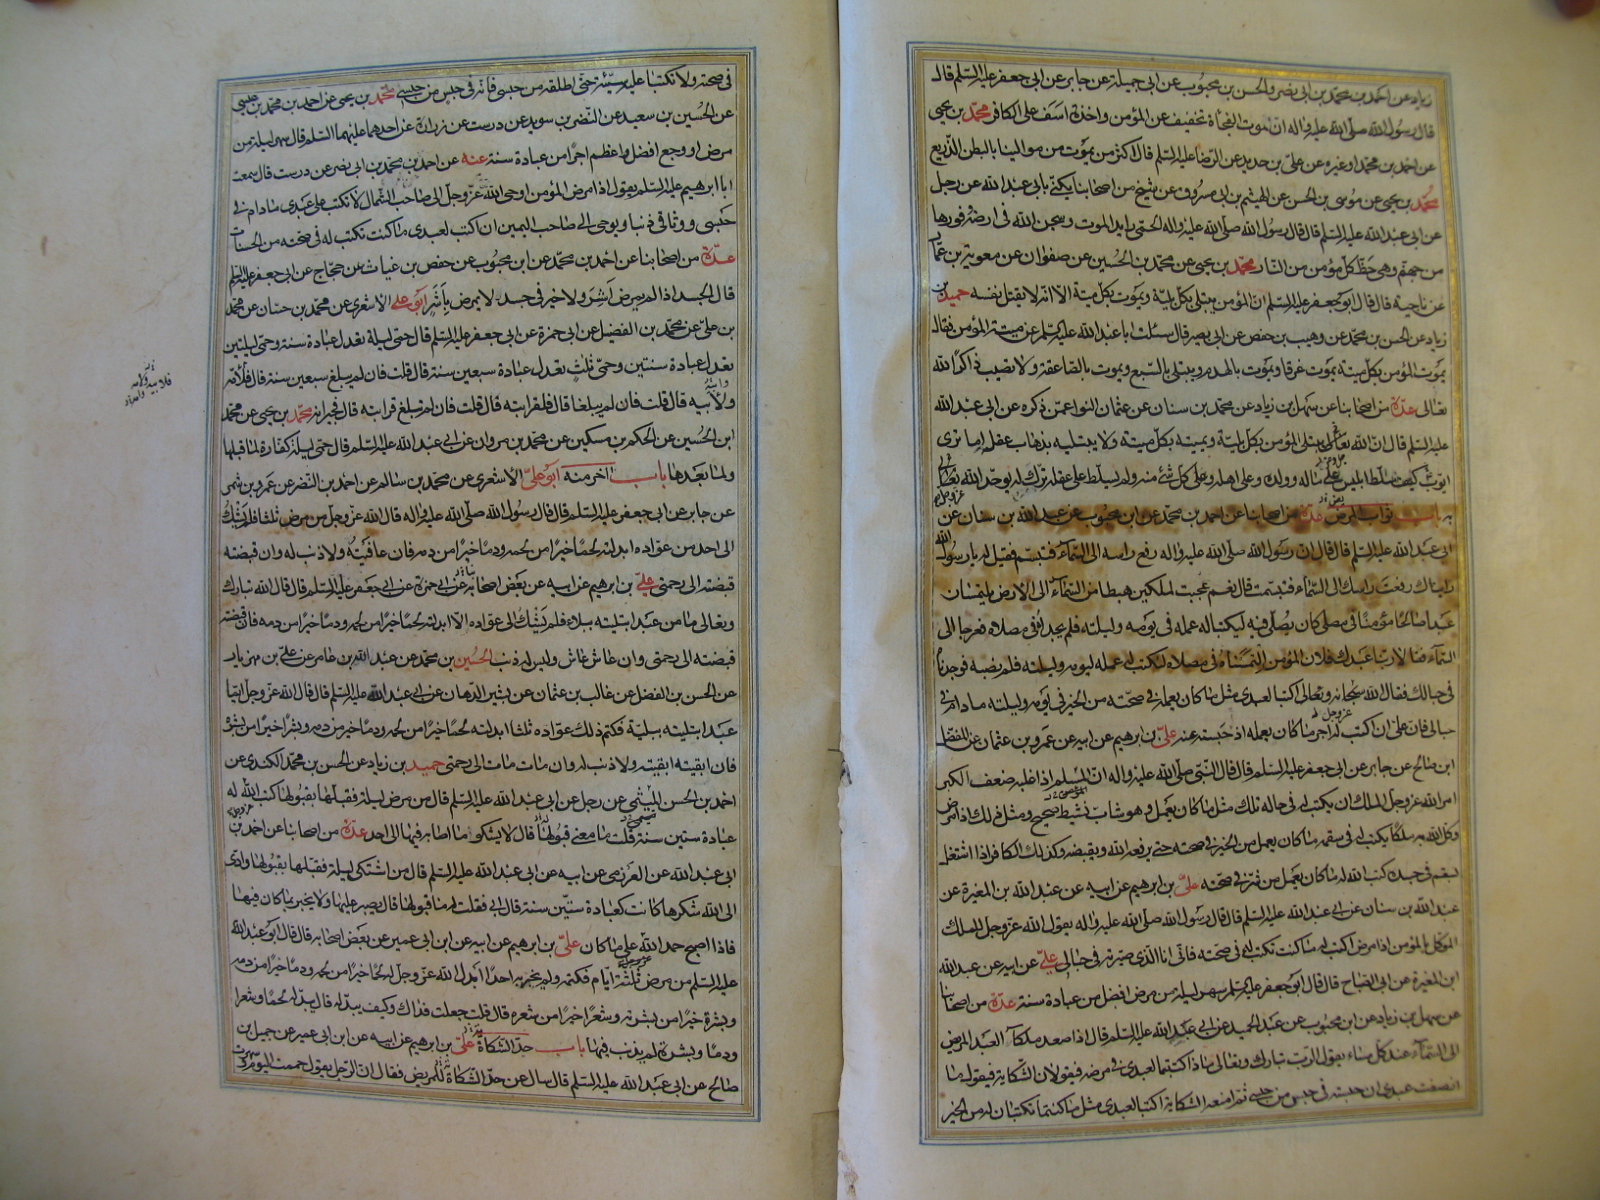 زياد عن احمد بن محمد بن ابى نصر والحسن بن محبوب عن ابى جميلة عن جابر عن ابى جعفر عليه السلم قال
قال رسول الله صلى الله عليه واله ان موت الفجأة تخفيف عن المؤمن واخذة اسف على الكافر محمد بن يحيى
عن احمد بن محمد او غيره عن على بن حديد عن الرضا عليه السلم قال اكثر من يموت من موالينا بالبطن الذريع
محمد بن يحيى عن موسى بن الحسن عن الهيثم بن ابى مسروق عن شيخ من اصحابنا يكنى بابى عبد الله عن رجل
عن ابى عبد الله عليه السلم قال قال رسول الله صلى الله عليه واله الحمى رايد الموت وسجن الله فى ارضه فورها
من جهنم وهى حظ كل مؤمن من النار محمد بن يحيى عن محمد بن الحسين عن صفوان عن معوية بن عمار
عن ناجية قال قال ابو جعفر عليه السلم ان المؤمن يبتلى بكل بلية ويموت بكل ميتة الا انه لا يقتل نفسه حميد بن
زياد عن الحسن بن محمد عن وهيب بن حفص عن ابى بصير قال سئلت ابا عبد الله عليه السلم عن ميتة المؤمن فقال
يموت المؤمن بكل ميتة يموت غرقا ويموت بالهدم ويبتلى بالسبع ويموت بالصاعقة ولا تصيب ذاكرا لله
تعالى عدة من اصحابنا عن سهل بن زياد عن محمد بن سنان عن عثمان النوا عمن ذكره عن ابى عبد الله
عليه السلم قال ان الله تعالى يبتلى المؤمن بكل بلية ويميته بكل ميتة ولا يبتليه بذهاب عقله اما ترى
ايوب كيف سلط ابليس على ماله وولده وعلى اهله وعلى كل شئ منه ولم يسلط على عقله ترك له يوحد الله تعالى
به باب ثواب المرض عدة من اصحابنا عن احمد بن محمد عن ابن محبوب عن عبد الله بن سنان عن
ابى عبد الله عليه السلم قال قال ان رسول الله صلى الله عليه واله رفع راسه الى السماء فتبسم فقيل له يا رسول الله
رايناك رفعت راسك الى السماء فتبسمت قال نعم عجبت لملكين هبطا من السماء الى الارض يلتمسان
عبدا صالحا مؤمنا فى مصلى كان يصلى فيه ليكتبا له عمله فى يومه وليلته فلم يجداه فى مصلاه فعرجا الى
السماء فقالا ربنا عبدك فلان المؤمن التمسناه فى مصلاه لنكتب له عمله ليومه وليلته فلم نصبه فوجدناه
فى حبالك فقال الله سبحانه وتعالى اكتبا لعبدى مثل ما كان يعمله فى صحته من الخير فى يومه وليلته ما دام فى
حبالى فان على ان اكتب له اجر ما كان يعمله اذ حبسته عنه على بن ابرهيم عن ابيه عن عمرو بن عثمان عن المفضل
ابن صالح عن جابر عن ابى جعفر عليه السلم قال قال النبى صلى الله عليه واله ان المسلم اذا غلبه ضعف الكبر
امر الله عز وجل الملك ان يكتب له فى حاله تلك مثل ما كان يعمل وهو شاب نشيط صحيح ومثل ذلك اذا مرض
وكل الله به ملكا يكتب له فى سقمه ما كان يعمل من الخير فى صحته حتى يرفعه الله ويقبضه وكذلك الكافر اذا اشتغل
بسقم فى جسده كتب الله له ما كان يعمل من شر فى صحته على بن ابرهيم عن ابيه عن عبد الله بن المغيرة عن
عبد الله بن سنان عن ابى عبد الله عليه السلم قال قال رسول الله صلى الله عليه واله يقول الله عز وجل للملك
الموكل بالمؤمن اذا مرض اكتب له ما كنت تكتب له فى صحته فانى انا الذى صيرته فى حبالى على عن ابيه عن عبد الله
ابن المغيرة عن ابى الصباح قال قال ابو جعفر عليه السلم سهر ليلة من مرض افضل من عبادة سنة عدة من اصحابنا
عن سهل بن زياد عن ابن محبوب عن عبد الحميد عن ابى عبد الله عليه السلم قال اذا صعد ملكا العبد المريض
الى السماء عند كل مساء يقول الرب تبارك وتعالى ماذا كتبتما لعبدى فى مرضه فيقولان الشكاية فيقول ما
انصفت عبدى ان حبسته فى حبس من حبسى ثم امنعه الشكاية اكتبا لعبدى مثل ما كنتما تكتبان له من الخير
فى صحته ولا تكتبا عليه سيئة حتى اطلقه من حبسى فانه فى حبس من حبسى محمد بن يحيى عن احمد بن محمد بن عيسى
عن الحسين بن سعيد عن النضر بن سويد عن درست عن زرارة عن احدهما عليهما السلم قال سهر ليلة من
مرض او وجع افضل واعظم اجرا من عبادة سنة عنه عن احمد بن محمد بن ابى نصر عن درست قال سمعت
ابا ابرهيم عليه السلم يقول اذا مرض المؤمن اوحى الله عز وجل الى صاحب الشمال لا تكتب على عبدى ما دام فى
حبسى ووثاقى ذنبا ويوحى الى صاحب اليمين ان اكتب لعبدى ما كنت تكتب له فى صحته من الحسنات
عدة من اصحابنا عن احمد بن محمد عن ابن محبوب عن حفص بن غياث عن حجاج عن ابى جعفر عليه السلم
قال الجسد اذا لم يمرض اشر ولا خير فى جسد لا يمرض باشر ابو على الاشعرى عن محمد بن حسان عن محمد
بن على عن محمد بن الفضيل عن ابى حمزة عن ابى جعفر عليه السلم قال حمى ليلة تعدل عبادة سنة وحمى ليلتين
تعدل عبادة سنتين وحمى ثلث تعدل عبادة سبعين سنة قال قلت فان لم يبلغ سبعين سنة قال فلامه
ولابيه قال قلت فان لم يبلغا قال فلقرابته قال قلت فان لم تبلغ قرابته قال فجيرانه محمد بن يحيى عن محمد
ابن الحسين عن الحكم بن مسكين عن محمد بن مروان عن ابى عبد الله عليه السلم قال حمى ليلة كفارة لما قبلها
ولما بعدها باب اخر منه ابو على الاشعرى عن محمد بن سالم عن احمد بن النضر عن عمرو بن شمر
عن جابر عن ابى جعفر عليه السلم قال قال رسول الله صلى الله عليه واله قال الله عز وجل من مرض ثلثا فلم يشك
الى احد من عواده ابدلته لحما خيرا من لحمه ودما خيرا من دمه فان عافيته ولا ذنب له وان قبضته
قبضته الى رحمتى على بن ابرهيم عن ابيه عن بعض اصحابه عن ابى حمزة عن ابى جعفر عليه السلم قال قال الله تبارك
وتعالى ما من عبد ابتليته ببلاء فلم يشك الى عواده الا ابدلته لحما خيرا من لحمه ودما خيرا من دمه فان قبضته
قبضته الى رحمتى وان عاش عاش وليس له ذنب الحسين بن محمد عن عبد الله بن عامر عن على بن مهزيار
عن الحسن بن الفضل عن غالب بن عثمان عن بشير الدهان عن ابى عبد الله عليه السلم قال قال الله عز وجل ايما
عبد ابتليته ببلية فكتم ذلك عواده ثلثا ابدلته لحما خيرا من لحمه ودما خير من دمه وبشرا خيرا من بشره
فان ابقيته ابقيته ولا ذنب له وان مات مات الى رحمتى حميد بن زياد عن الحسن بن محمد الكندى عن
احمد بن الحسن الميثمى عن رجل عن ابى عبد الله عليه السلم قال من مرض ليلة فقبلها بقبولها كتب الله له
عبادة ستين سنة قلت ما معنى قبولها قال لا يشكو ما اصابه فيها الى احد عدة من اصحابنا عن احمد بن
ابى عبد الله عن العزرمى عن ابيه عن ابى عبد الله عليه السلم قال من اشتكى ليلة فقبلها بقبولها وادى
الى الله شكرها كانت كعبادة ستين سنة قال ابى فقلت له ما قبولها قال يصبر عليها ولا يخبر بما كان فيها
فاذا اصبح حمد الله على ما كان على بن ابرهيم عن ابيه عن ابن ابى عمير عن بعض اصحابه قال قال ابو عبد الله
عليه السلم من مرض ثلثة ايام فكتمه ولم يخبر به احدا ابدل الله عز وجل له لحما خيرا من لحمه ودما خيرا من دمه
وبشرة خيرا من بشرته وشعرا خيرا من شعره قال قلت جعلت فداك وكيف يبدله قال يبدله لحما وشعرا
ودما وبشرة لم يذنب فيها باب حد الشكاة على بن ابرهيم عن ابيه عن ابن ابى عمير عن جميل بن
صالح عن ابى عبد الله عليه السلم قال سال عن حد الشكاة للمريض فقال ان الرجل يقول حممت اليوم وسهرت